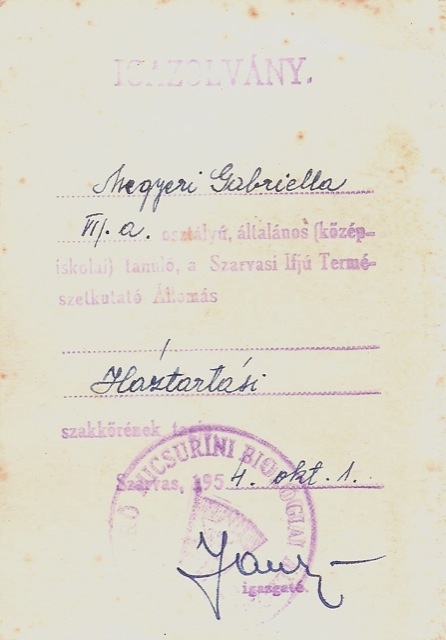 IGAZOLVÁNY.
Megyeri Gabriella
VII. a. osztályú, általános (közép-
iskolai) tanuló, a Szarvasi Ifjú Termé-
szetkutató Állomás
Háztartási
szakkörének
Szarvas, 1954. okt. 1.
MICSURINI
igazgató.